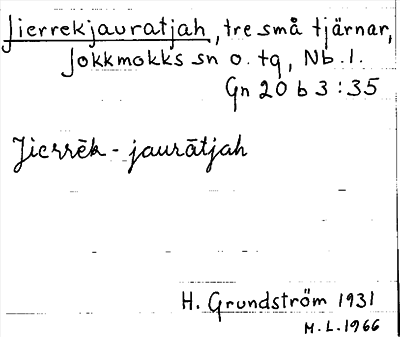 Jierrekjauratjah, tre små tjärnar,
Jokkmokks sn o. tg, Nb. l.
Gn 20 b 3:35
Jierrēk - jaurātjah
H. Grundström 1931
M.L. 1966